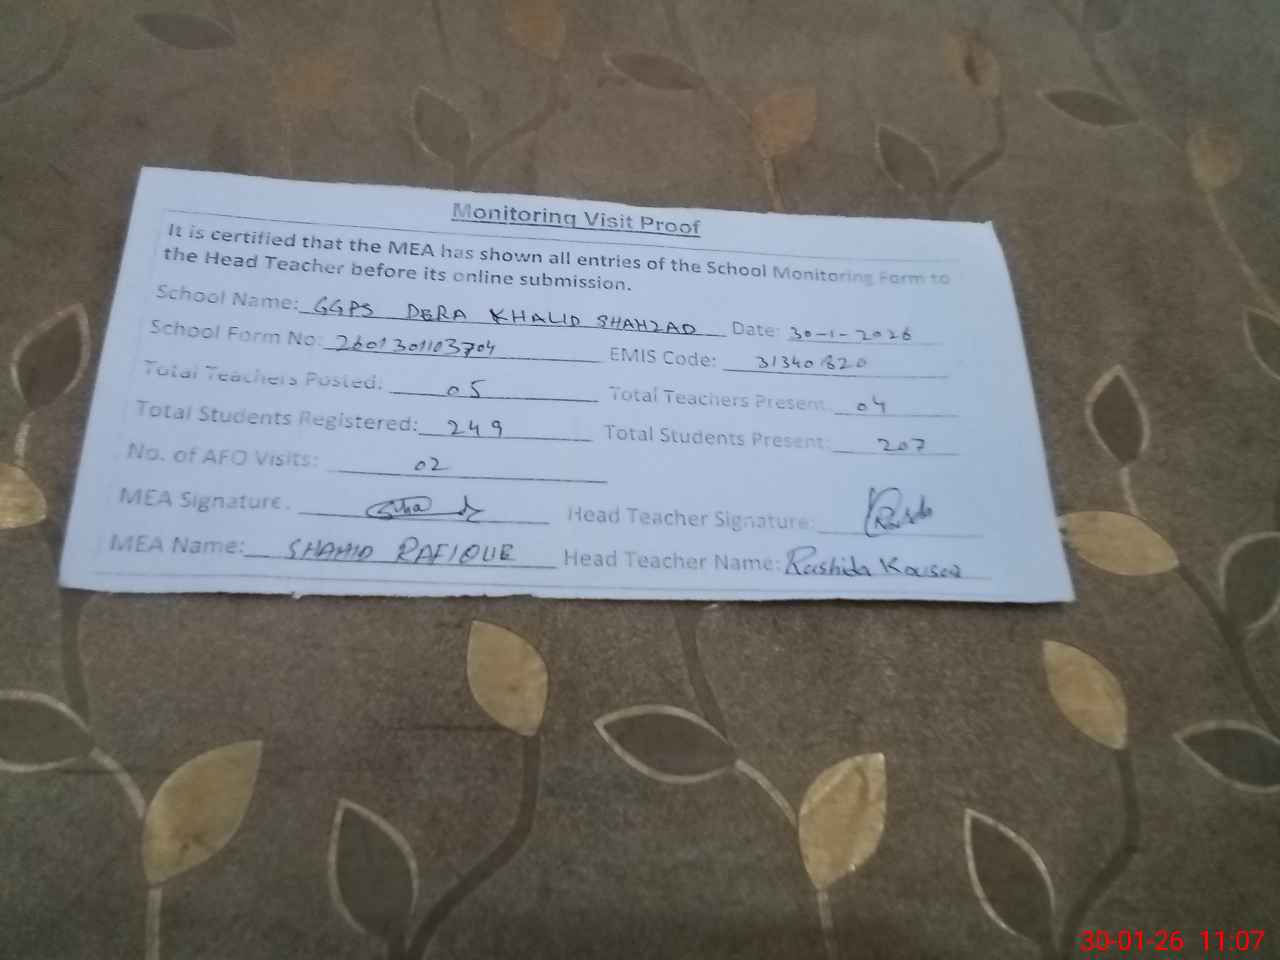 Monitoring Visit Proof
It is certified that the MEA has shown all entries of the School Monitoring Form to
the Head Teacher before its online submission.
School Name: GGPS DERA KHALID SHAHZAD Date: 30-1-2026
School Form No: 2601301103704 EMIS Code: 31340820
Total Teachers Posted: 05 Total Teachers Present: 04
Total Students Registered: 249 Total Students Present: 207
No. of AFO Visits: 02
MEA Signature. Head Teacher Signature:
MEA Name: SHAHID RAFIQUE Head Teacher Name: Rashida Kousar
30-01-26 11:07